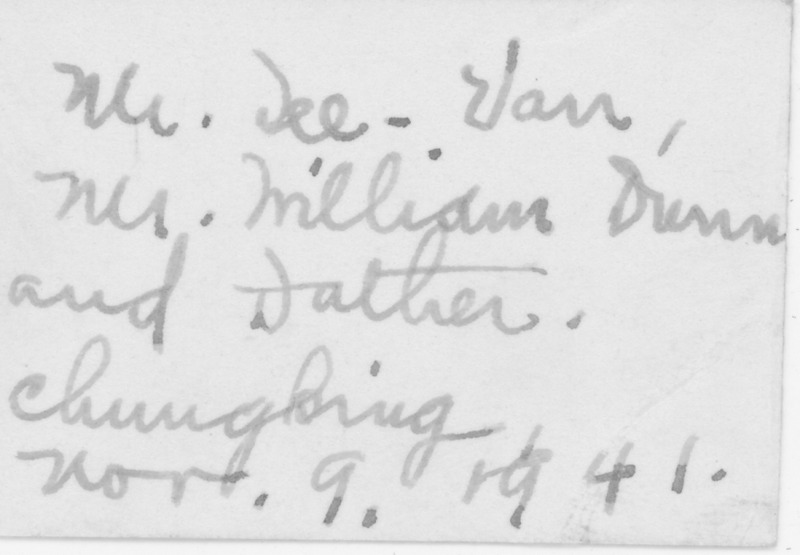 Mr. Dee-Van,
Mr. William Dunn
and Father.
Chungking
Nov. 9. 1941.